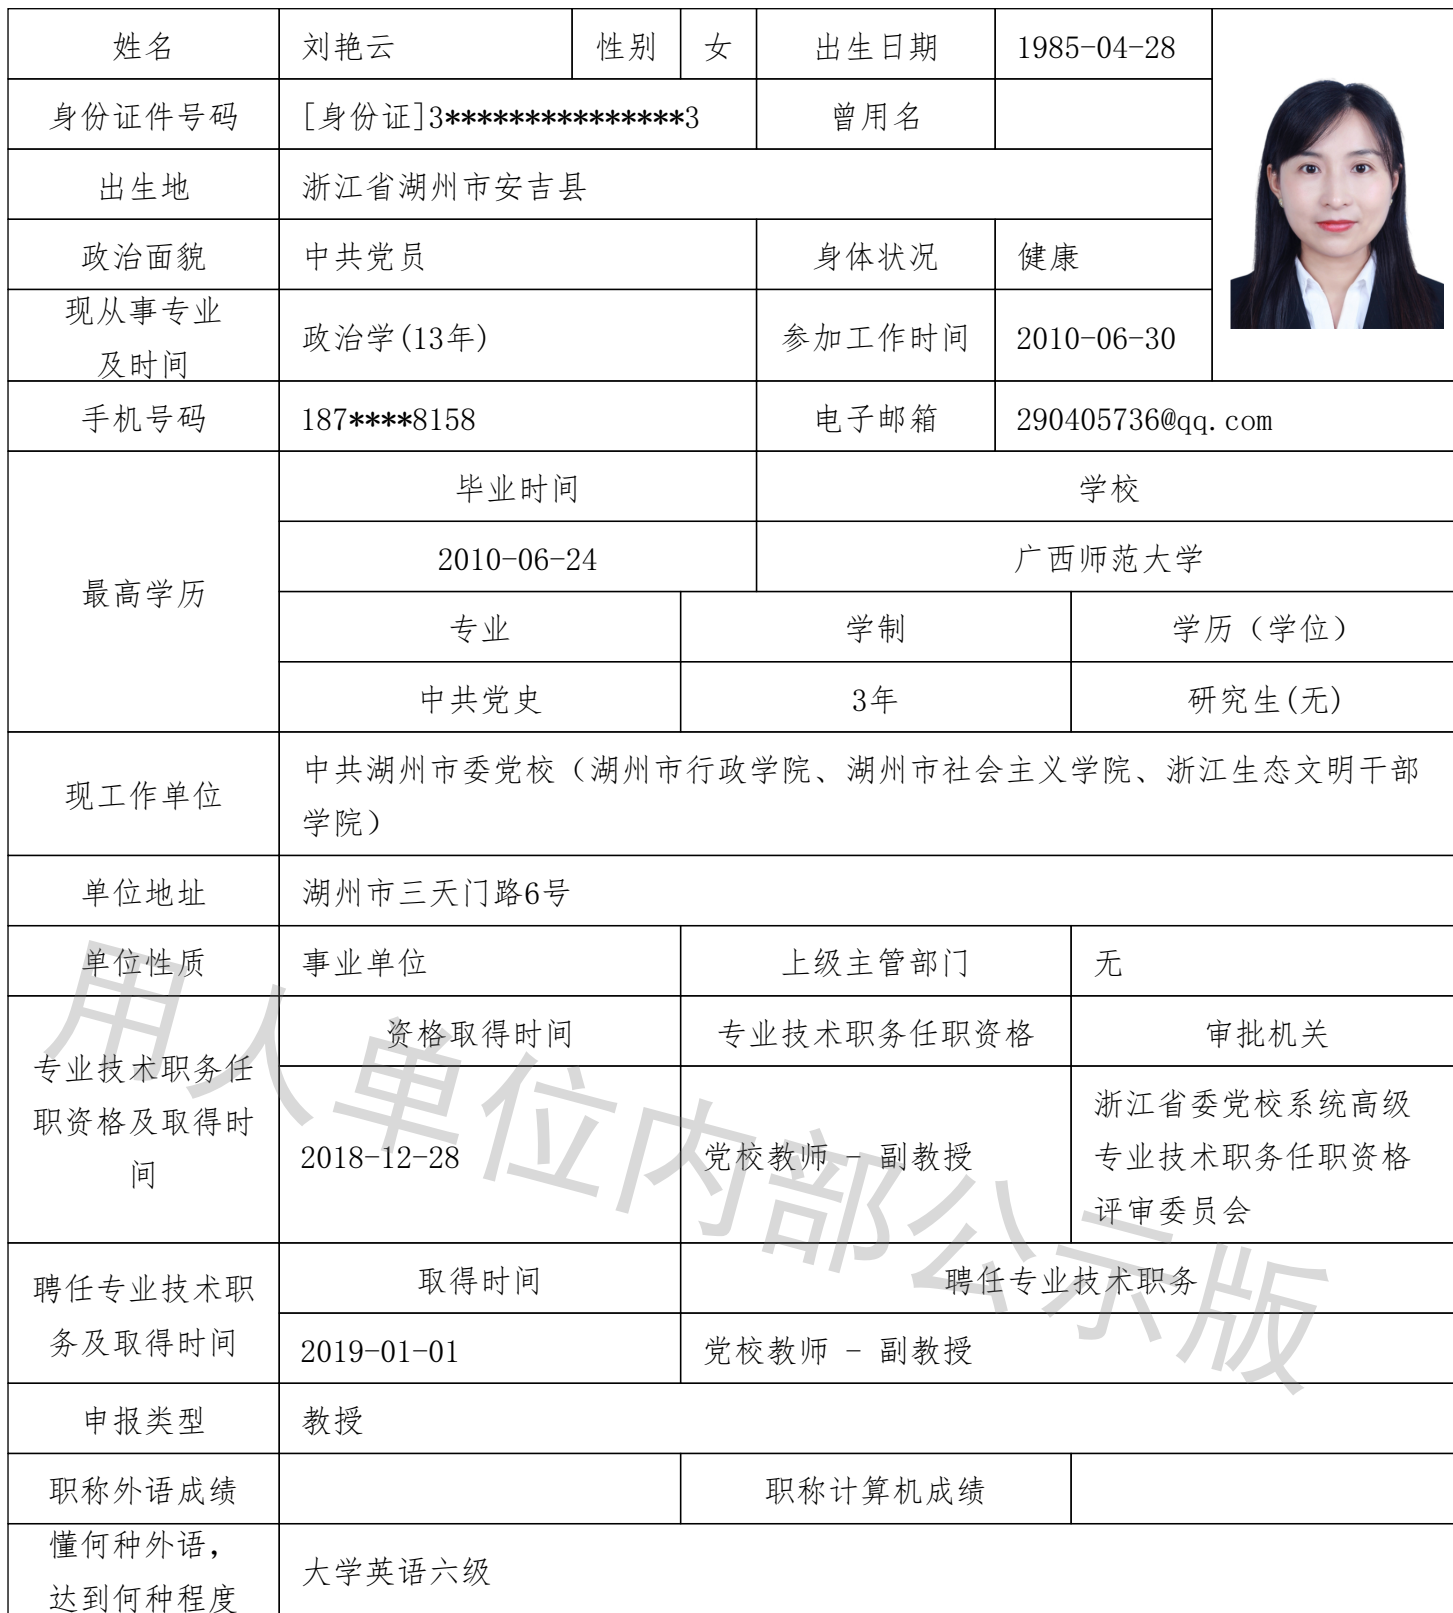 姓名 刘艳云 性别 女 出生日期 1985-04-28
身份证件号码 [身份证]3***************3 曾用名
出生地 浙江省湖州市安吉县
政治面貌 中共党员 身体状况 健康
现从事专业
及时间
政治学(13年) 参加工作时间 2010-06-30
手机号码 187****8158 电子邮箱 290405736@qq.com
最高学历
毕业时间 学校
2010-06-24 广西师范大学
专业 学制 学历（学位）
中共党史 3年 研究生(无)
现工作单位
中共湖州市委党校（湖州市行政学院、湖州市社会主义学院、浙江生态文明干部
学院）
单位地址 湖州市三天门路6号
单位性质 事业单位 上级主管部门 无
专业技术职务任
职资格及取得时
间
资格取得时间 专业技术职务任职资格 审批机关
2018-12-28 党校教师 - 副教授
浙江省委党校系统高级
专业技术职务任职资格
评审委员会
聘任专业技术职
务及取得时间
取得时间 聘任专业技术职务
2019-01-01 党校教师 - 副教授
申报类型 教授
职称外语成绩 职称计算机成绩
懂何种外语，
达到何种程度
大学英语六级
用人单位内部公示版